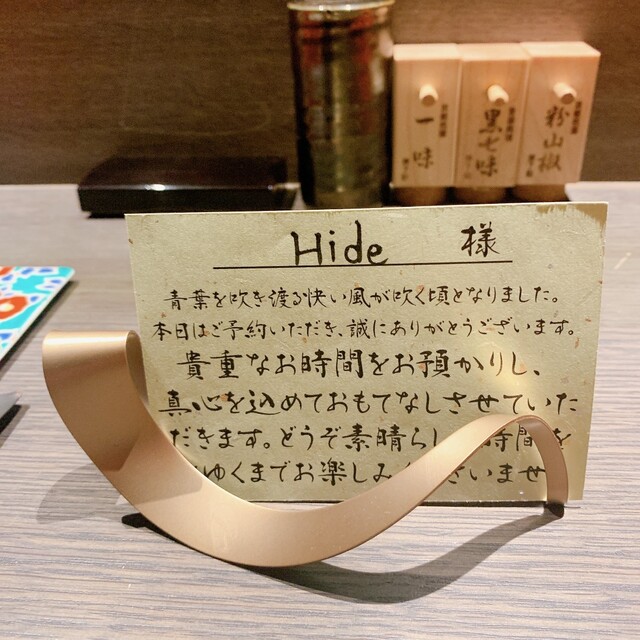 一味
黒七味
粉山椒
Hide 様
青葉を吹き渡る快い風が吹く頃となりました。
本日はご予約いただき、誠にありがとうございます。
貴重なお時間をお預かりし、
真心を込めておもてなしさせていた
だきます。どうぞ素晴らし 時間を
ゆくまでお楽しみ さいませ